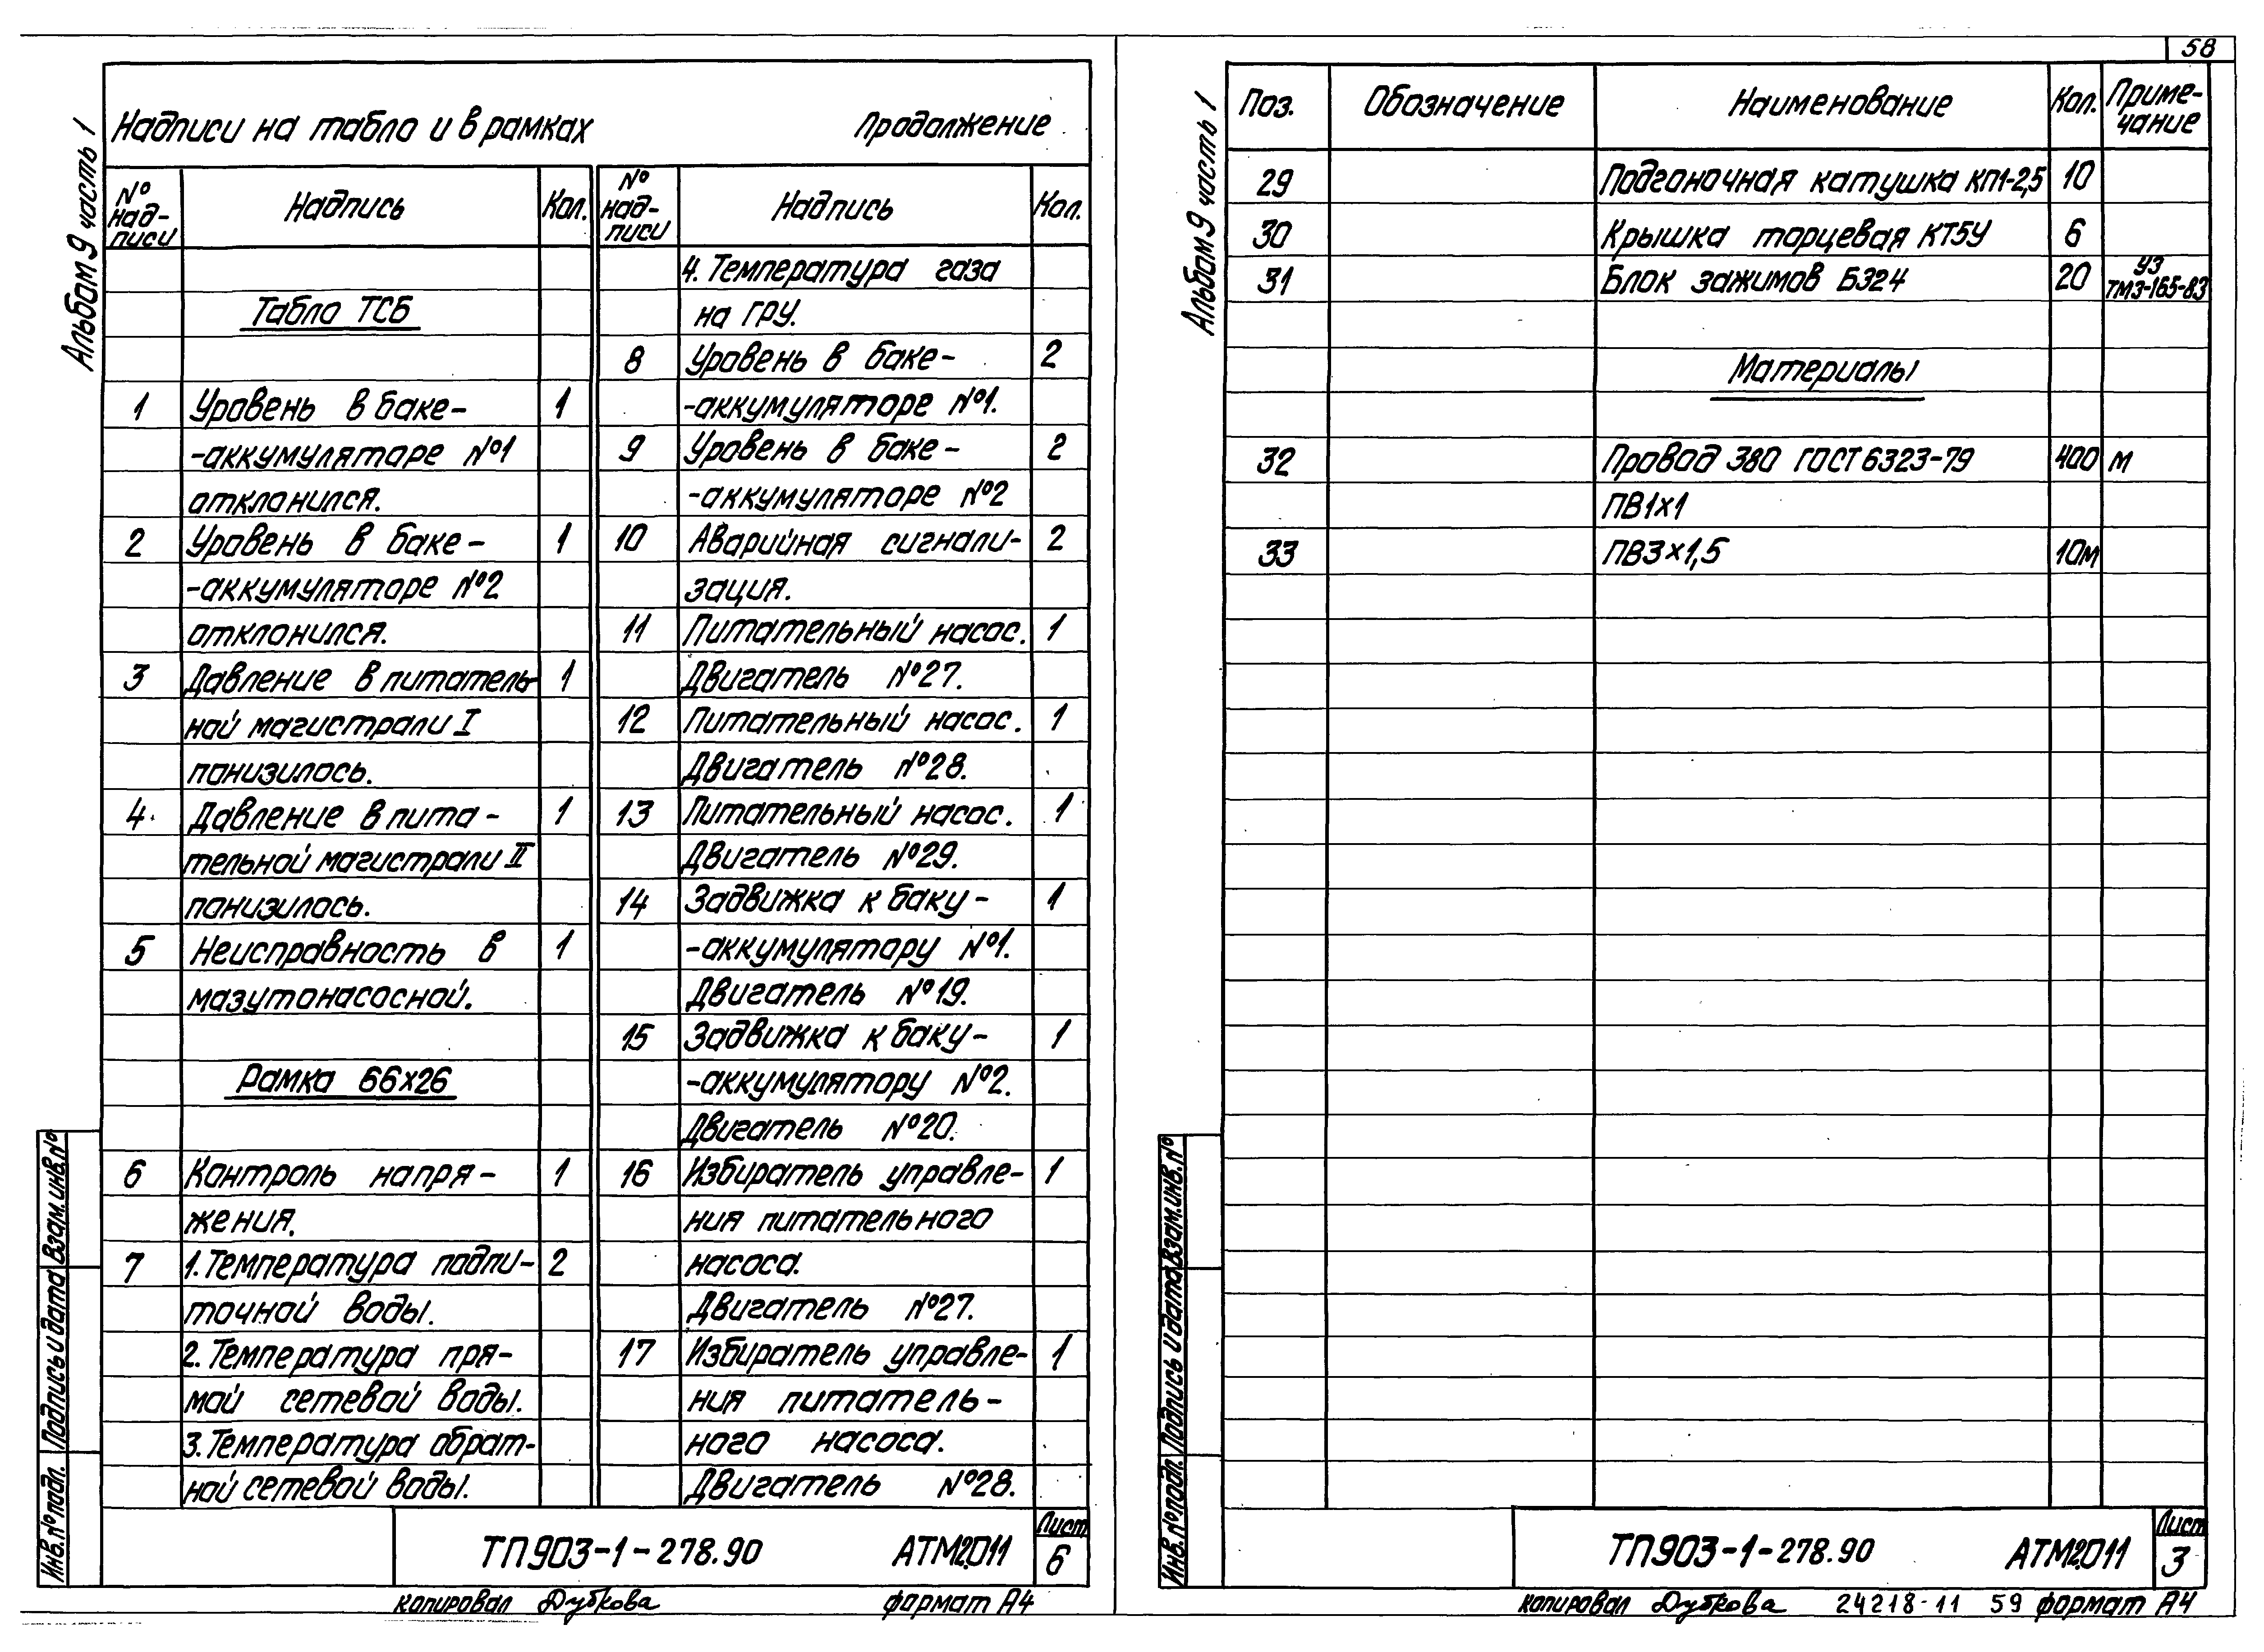 58
Альбом 9 часть 1
Надписи на табло и в рамках Продолжение
№ надписи Надпись Кол. № надписи Надпись Кол.
Табло ТСБ
1 Уровень в баке- 1
-аккумуляторе №1
отклонился.
2 Уровень в баке- 1
-аккумуляторе №2
отклонился.
3 Давление в питатель- 1
ной магистрали I
понизилось.
4 Давление в пита- 1
тельной магистрали II
понизилось.
5 Неисправность в 1
мазутонасосной.
Рамка 66х26
6 Контроль напря- 1
жения.
7 1. Температура подпи- 2
точной воды.
2. Температура пря-
мой сетевой воды.
3. Температура обрат-
ной сетевой воды.
4. Температура газа
на ГРУ.
8 Уровень в баке- 2
-аккумуляторе №1.
9 Уровень в баке- 2
-аккумуляторе №2
10 Аварийная сигнали- 2
зация.
11 Питательный насос. 1
Двигатель №27.
12 Питательный насос. 1
Двигатель №28.
13 Питательный насос. 1
Двигатель №29.
14 Задвижка к баку- 1
-аккумулятору №1.
Двигатель №19.
15 Задвижка к баку- 1
-аккумулятору №2.
Двигатель №20.
16 Избиратель управле- 1
ния питательного
насоса.
Двигатель №27.
17 Избиратель управле- 1
ния питатель-
ного насоса.
Двигатель №28.
Взам. инв. №
Подпись и дата
Инв. № подл.
ТП903-1-278.90 АТМ2.011 Лист 6
копировал Дубкова формат А4
Альбом 9 часть 1
Поз. Обозначение Наименование Кол. Приме-
чание
29 Подгоночная катушка КП1-2,5 10
30 Крышка торцевая КТ5У 6
31 Блок зажимов БЗ24 20 УЗ
ТМ3-165-83
Материалы
32 Провод 380 ГОСТ 6323-79 400 м
ПВ1х1
33 ПВ3х1,5 10м
Взам. инв. №
Подпись и дата
Инв. № подл.
ТП903-1-278.90 АТМ2.011 Лист 3
копировал Дубкова 24218-11 59 формат А4